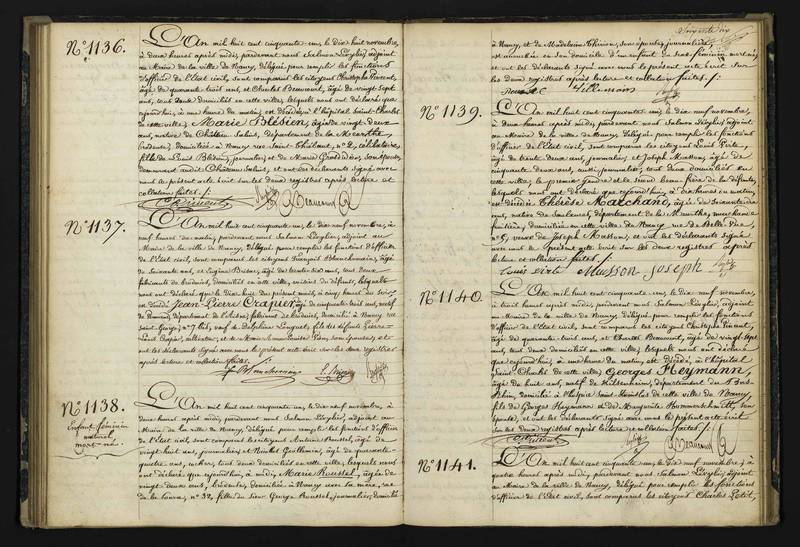 N.° 1136.
L'An mil huit cent cinquante-un, le dix huit novembre,
à deux heures après midi, pardevant nous Salmon Lévylier, adjoint
au Maire de la ville de Nancy, délégué pour remplir les fonctions
d'officier de l'Etat civil, sont comparus les citoyens Christophe
âgé de quarante-trois ans, et Charles Beaucourt, âgé de vingt sept
ans, tous deux domiciliés en cette ville, lesquels nous ont déclaré que
aujourd'hui, à une heure du matin, est décédée à l'hôpital Saint-Charles
de cette ville, Marie Blésien, âgée de vingt-deux
ans, native de Château-Salins, Département de la Meurthe,
domiciliée à Nancy rue Saint-Thiébaut, n.° 2, célibataire,
fille de Blésien, journalier, et de Marie
demeurant audit Château-Salins, et ont les déclarants signé avec
nous le présent acte écrit sur les deux registres après lecture et
collation faites /.
N.° 1137.
L'An mil huit cent cinquante-un, le dix neuf novembre, à
neuf heures du matin, pardevant nous Salmon Lévylier, adjoint au
Maire de la ville de Nancy, délégué pour remplir les fonctions d'officier
de l'Etat civil, sont comparus les citoyens François Blanchemain, âgé
de soixante ans, et Eugène âgé de trente-six ans, tous deux
fabricants de broderies, domiciliés en cette ville, voisins du défunt, lesquels
nous ont déclaré que le dix huit du présent mois, à cinq heures du soir
est décédé Jean-Pierre Crapier, âgé de cinquante-trois ans, natif
de département de fabricant de broderies, domicilié à Nancy rue
Saint-Georges, n.° 7 veuf de Delphine fils des défunts Pierre-
Louis Crapier, et de Marie son épouse, et
ont les déclarants signé avec nous le présent acte écrit sur les deux registres
après lecture et collation faites.
N.° 1138.
Enfant féminin
naturel,
mort-né.
L'An mil huit cent cinquante-un, le dix neuf novembre, à
deux heures après midi, pardevant nous Salmon Lévylier, adjoint au
Maire de la ville de Nancy, délégué pour remplir les fonctions d'officier
de l'Etat civil, sont comparus les citoyens Antoine Roussel, âgé de
vingt-huit ans, journalier, et Nicolas âgé de quarante-
quatre ans, cocher, tous deux domiciliés en cette ville, lesquels nous
ont déclaré que aujourd'hui, à midi, Marie Roussel, âgée de
vingt-deux ans, brodeuse, domiciliée à Nancy avec sa mère, rue
n.° 32, fille du sieur George Roussel, journalier, domicilié
à Nancy, et de Madeleine Thirion, son épouse, journalière,
est accouchée en son domicile d'un enfant du sexe féminin mort-né,
et ont les déclarants signé avec nous le présent acte écrit sur
les deux registres après lecture et collation faites /.
N.° 1139.
L'An mil huit cent cinquante-un, le dix neuf novembre,
à deux heures après midi, pardevant nous Salmon Lévylier, adjoint
au Maire de la ville de Nancy, délégué pour remplir les fonctions
d'officier de l'Etat civil, sont comparus les citoyens Louis
âgé de trente-deux ans, journalier, et Joseph Musson, âgé de
cinquante deux ans, aussi journalier, tous deux domiciliés en
cette ville, le premier gendre et le second beau-frère de la défunte,
lesquels nous ont déclaré que aujourd'hui, à dix heures du matin,
est décédée Thérèse Marchand, âgée de soixante-dix
ans, native de département de la Meurthe, marchande
fruitière, domiciliée en cette ville de Nancy rue
n.° 5, veuve de Joseph Masson, et ont les déclarants signé
avec nous le présent acte écrit sur les deux registres après
lecture et collation faites /.
Musson joseph
N.° 1140.
L'An mil huit cent cinquante-un, le dix neuf novembre,
à trois heures après midi, pardevant nous Salmon Lévylier, adjoint
au Maire de la ville de Nancy, délégué pour remplir les fonctions
d'officier de l'Etat civil, sont comparus les citoyens Christophe
âgé de quarante-trois ans, et Charles Beaucourt, âgé de vingt-sept
ans, tous deux domiciliés en cette ville, lesquels nous ont déclaré
que aujourd'hui, à une heure du matin, est décédé, à l'hôpital
Saint-Charles de cette ville, Georges Heymann,
âgé de huit ans, natif de département du Bas-
Rhin, domicilié à l'hospice Saint-Stanislas de cette ville de Nancy,
fils de Georges Heymann et de Marguerite son
épouse, et ont les déclarants signé avec nous le présent acte écrit
sur les deux registres après lecture et collation faites /.
N.° 1141.
L'An mil huit cent cinquante-un, le dix neuf novembre, à
quatre heures après midi, pardevant nous Salmon Lévylier, adjoint
au Maire de la ville de Nancy, délégué pour remplir les fonctions
d'officier de l'Etat civil, sont comparus les citoyens Charles Petit,